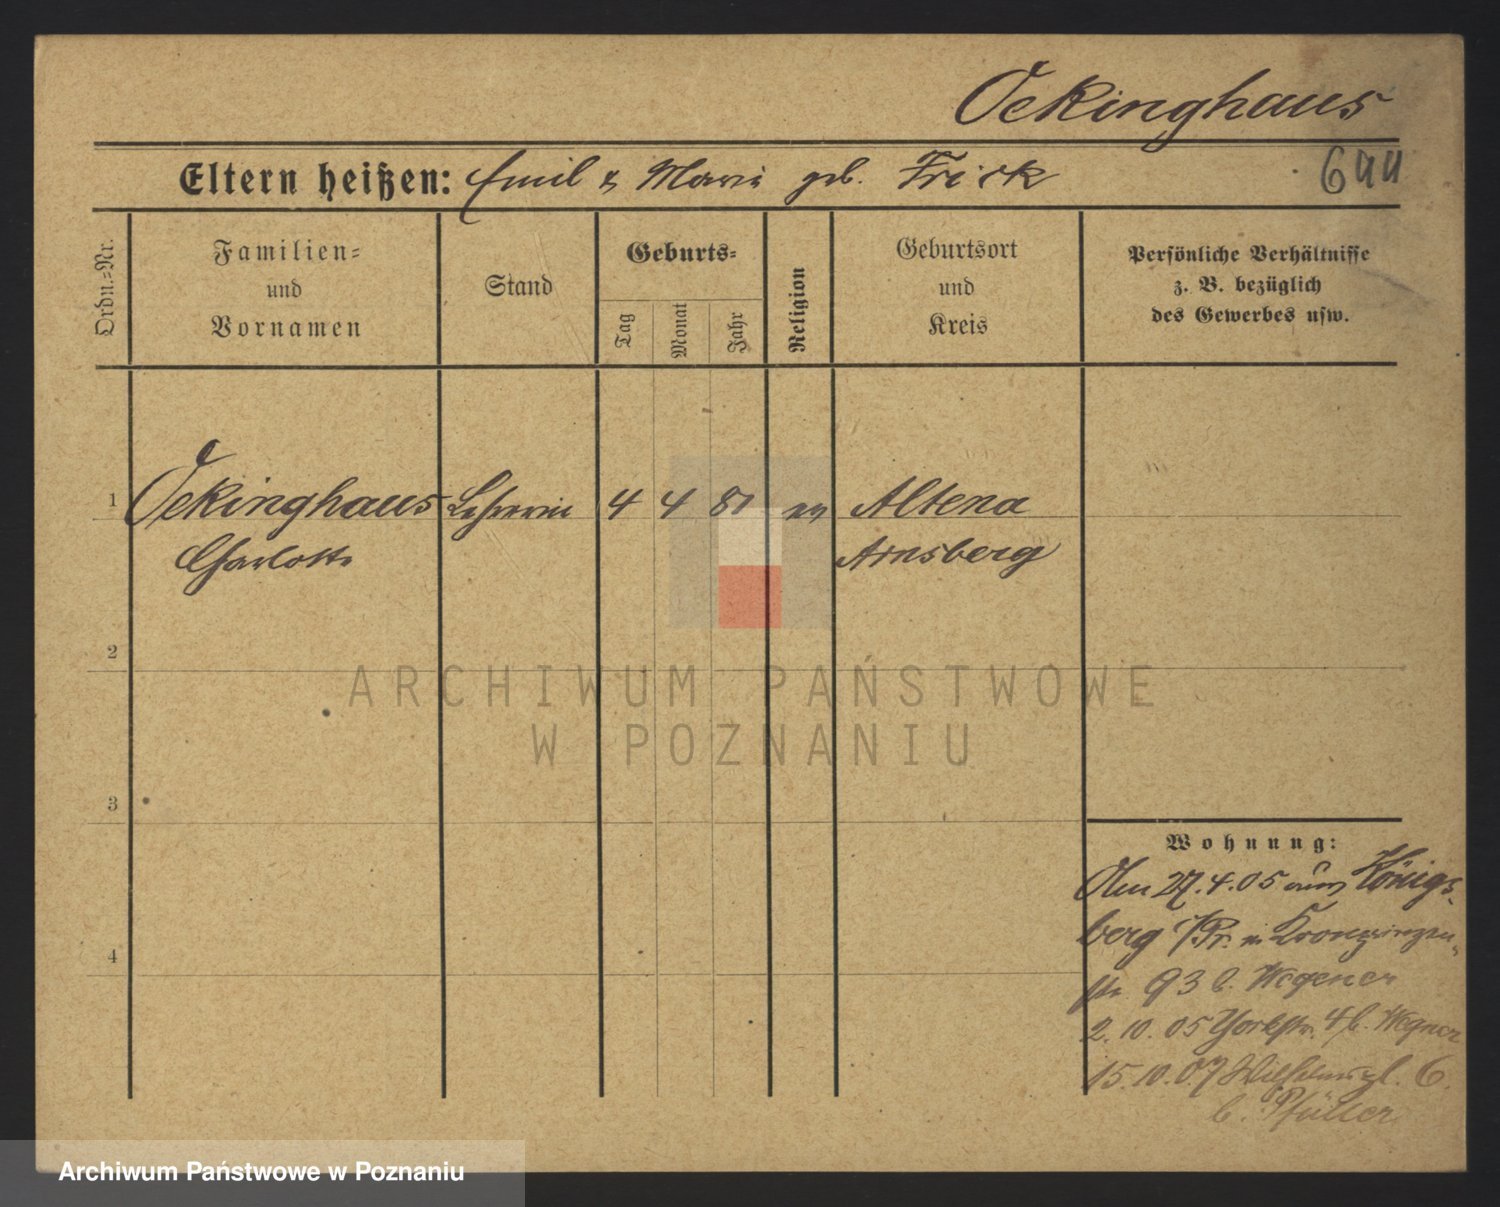 Oekinghaus
Eltern heißen: Emil & Marie geb. Frick
644
Ordn.=Nr.
Familien=
und
Vornamen
Stand
Geburts=
Tag
Monat
Jahr
Religion
Geburtsort
und
Kreis
Persönliche Verhältnisse
z. B. bezüglich
des Gewerbes usw.
1 Oekinghaus Lehrerin 4 4 81 ev Altena
Charlotte Arnsberg
2
ARCHIWUM PAŃSTWOWE
W POZNANIU
3
Wohnung:
Am 27.4.05 aus Königs-
berg i/Pr. in Kronprinzen-
str. 93 b. Wegener
4
2.10.05 Yorkstr. 4 b. Wegner
15.10.07 Wilhelmspl. 6.
b. Pfüller
Archiwum Państwowe w Poznaniu